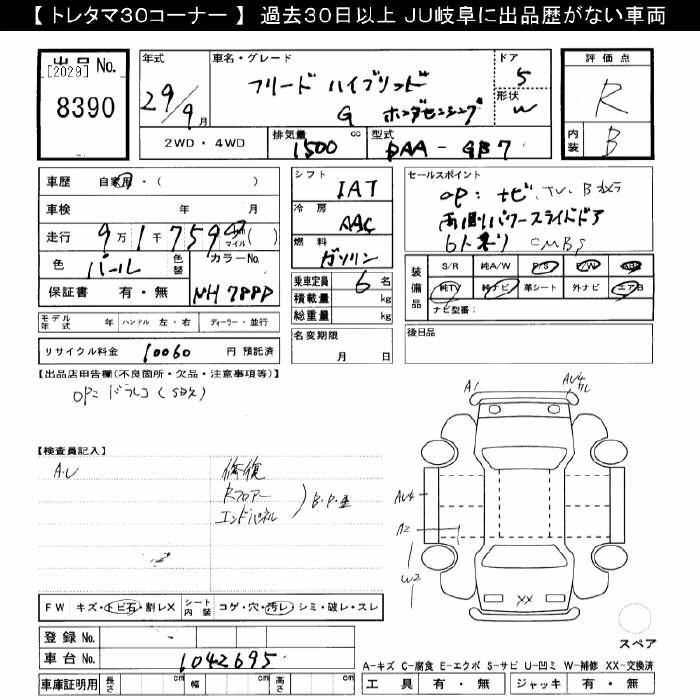 【 トレタマ30コーナー 】 過去30日以上 JU岐阜に出品歴がない車両
出品 No.
[2029]
8390
年式
29/9月
車名・グレード
フリード ハイブリッド
G ホンダセンシング
ドア
5
形状
W
評価点
R
内装
B
2WD・4WD
排気量 1500 cc
型式 DAA - GB7
車歴 自家用・( )
車検 年 月
走行 9万1千759 km マイル ( )
色 パール
色替
カラーNo.
NH788P
保証書 有・無
シフト
IAT
冷房
AAC
燃料
ガソリン
乗車定員 6 名
積載量 kg
総重量 kg
セールスポイント
OP: ナビ、TV、Bカメラ
両側パワースライドドア
6人乗り CMBS
装備品
S/R 純A/W P/S P/W ABS
純TV 純ナビ 革シート 外ナビ エアB
ナビ型番:
モデル年式 年 ハンドル 左・右 ディーラー・並行
リサイクル料金 10060 円 預託済
名変期限
月 日
後日品
【出品店申告欄(不良箇所・欠品・注意事項等)】
OP: ドラレコ(SD欠)
【検査員記入】
A・U
修復
Rフロアー
エンドパネル
B・P・歪
A1
AU4
ワレ
AU4
A2
W2
XX
FW キズ・トビ石・割レX シート内装 コゲ・穴・汚レ・シミ・破レ・スレ
登録 No. -
車台 No. 1042695
車庫証明用 長さ cm 幅 cm 高さ cm
スペア
A-キズ C-腐食 E-エクボ S-サビ U-凹ミ W-補修 XX-交換済
工具 有・無 ジャッキ 有・無